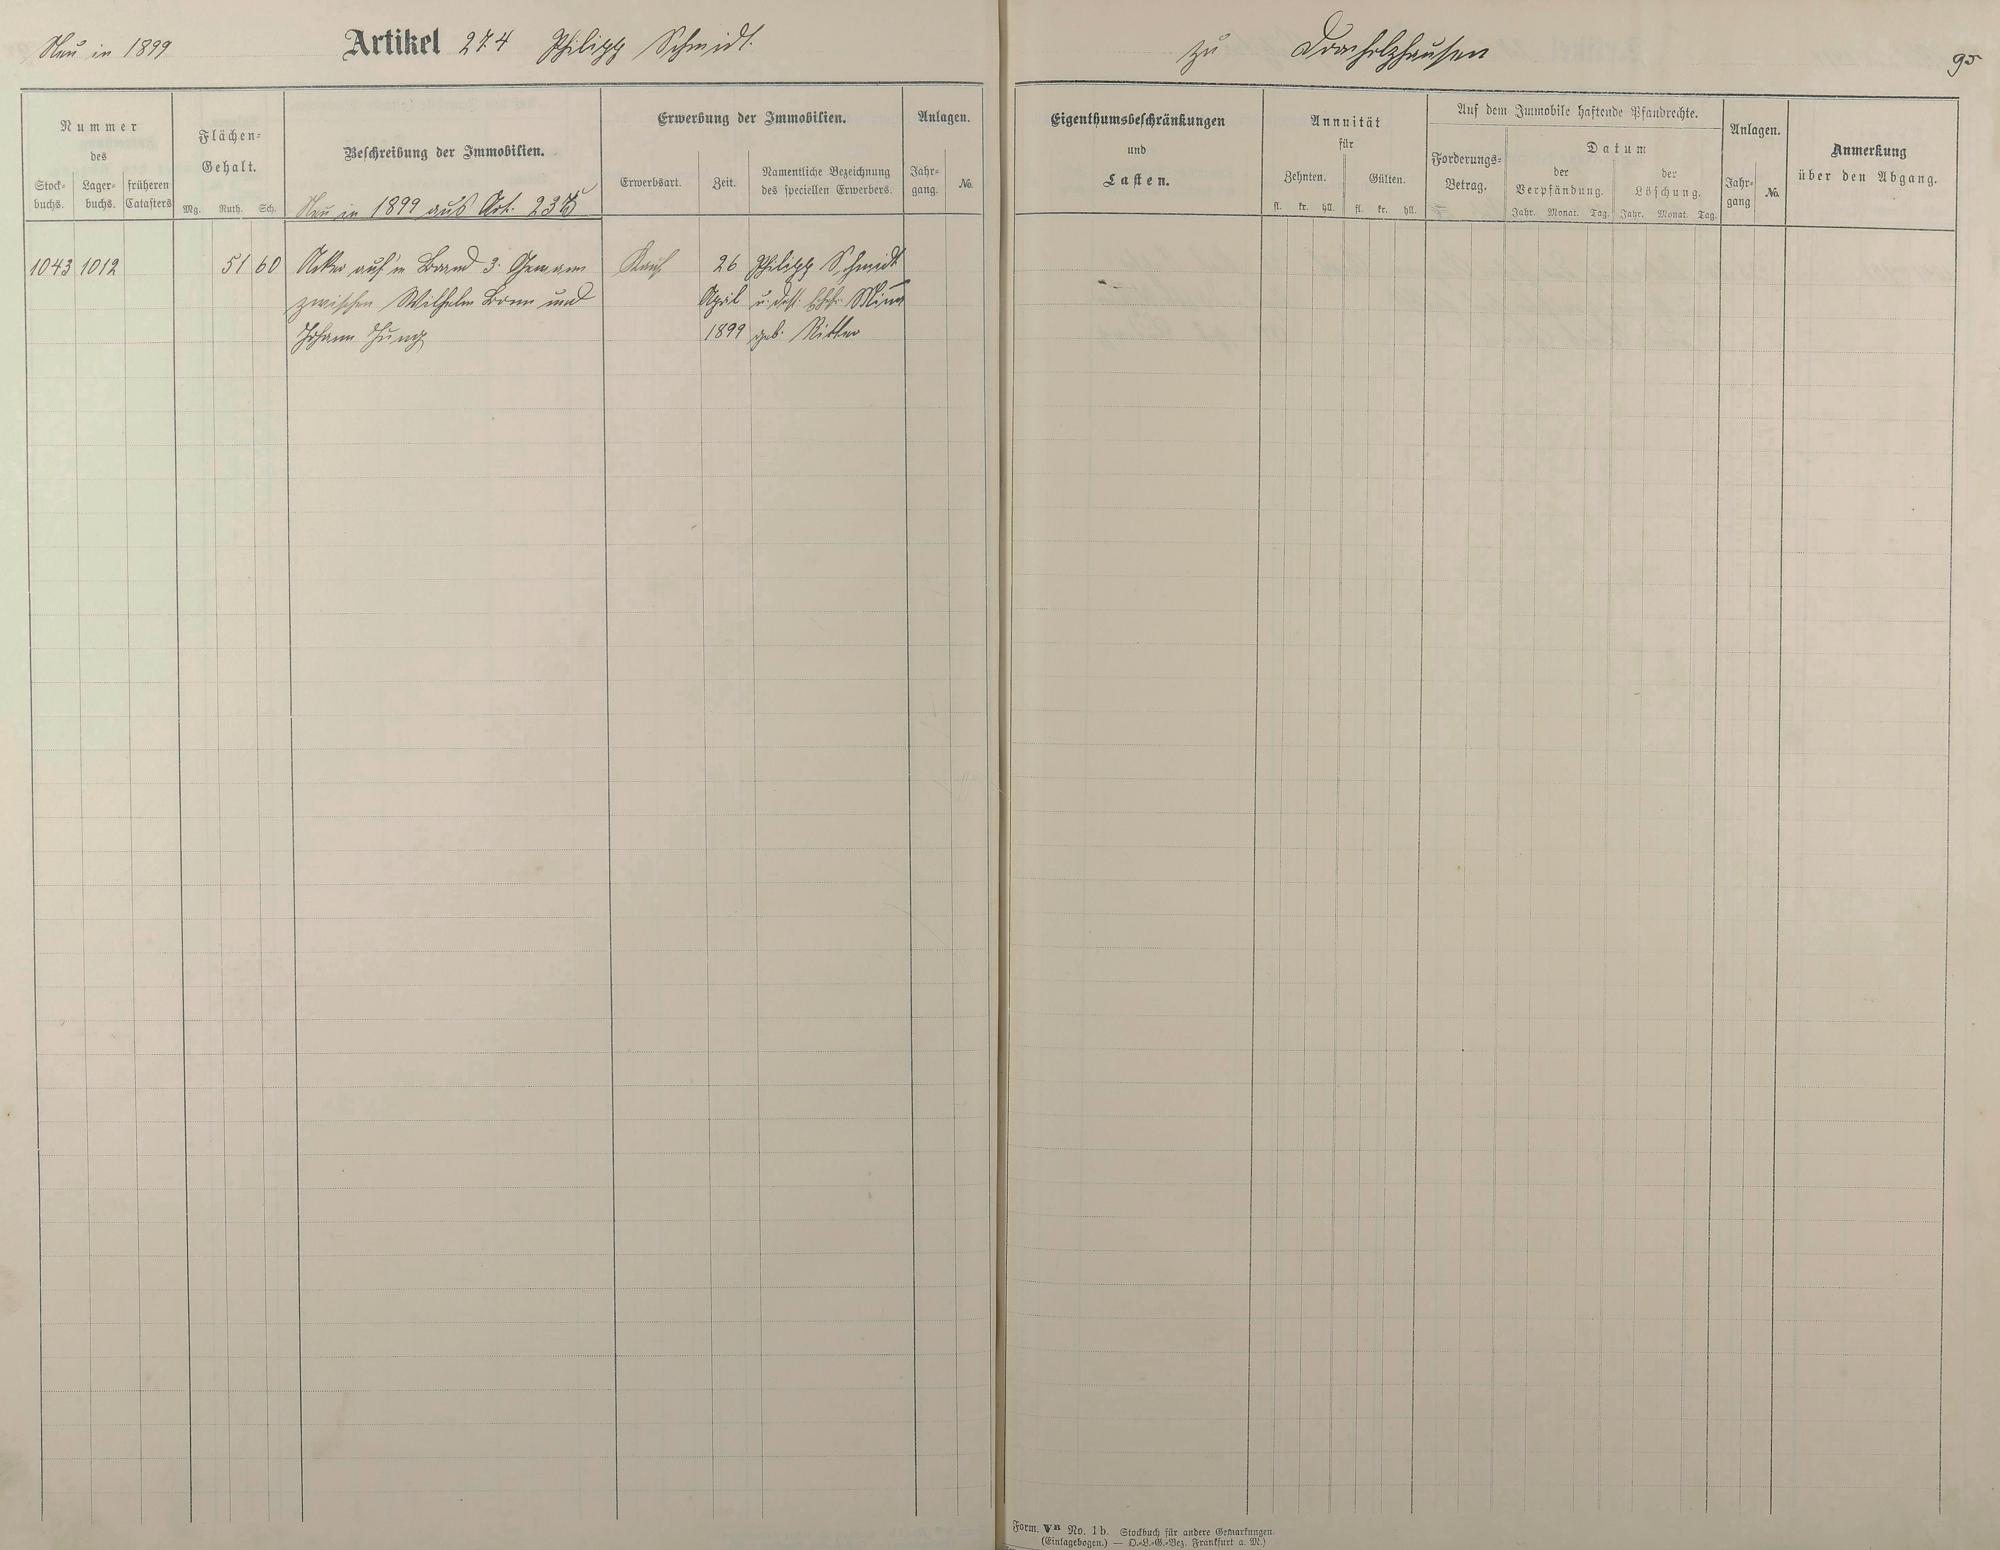 Neu in 1899 Artikel 274 Philipp Schmidt.
zu Dromsholzhausen 95
Nummer
des
Stock-
buchs.
Lager-
buchs.
früheren
Catasters
Flächen-
Gehalt.
Mg. Ruth. Sch.
Beschreibung der Immobilien.
Neu in 1899 aus Art.
Erwerbung der Immobilien.
Erwerbsart.
Zeit.
Namentliche Bezeichnung
des speciellen Erwerbers.
Anlagen.
Jahr-
gang.
No.
Eigenthumsbeschränkungen
und
Lasten.
Annuität
für
Zehnten. Gülten.
fl. kr. hll. fl. kr. hll.
Auf dem Immobile haftende Pfandrechte.
Forderungs-
Betrag.
Datum
der
Verpfändung.
der
Löschung.
Jahr. Monat. Tag. Jahr. Monat. Tag.
Anlagen.
Jahr-
gang
No.
Anmerkung
über den Abgang.
1043 1012 51 60 Acker auf'm Brand 3. Gewann Kauf 26 Philipp Schmidt
zwischen Wilhelm Bonn und April u. dess. Ehefr. Mina
Johann Jung 1899 geb. Ritter
Form. VB No. 1b. Stockbuch für andere Gemarkungen.
(Einlagebogen.) — O.-L.-G.-Bez. Frankfurt a. M.)